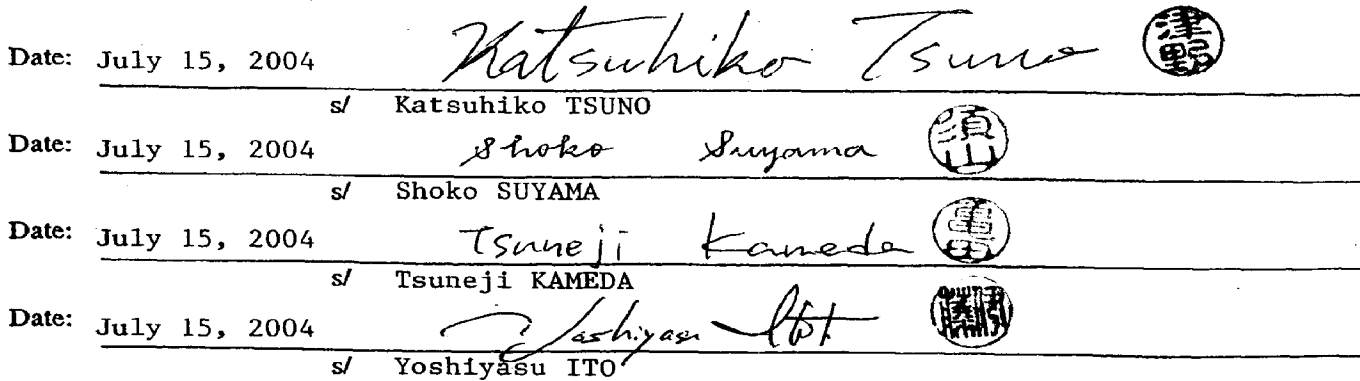 Date: July 15, 2004 Katsuhiko Tsuno 津野
s/ Katsuhiko TSUNO
Date: July 15, 2004 Shoko Suyama 須山
s/ Shoko SUYAMA
Date: July 15, 2004 Tsuneji Kameda 亀田
s/ Tsuneji KAMEDA
Date: July 15, 2004 Yoshiyasu Itoh
s/ Yoshiyasu ITO